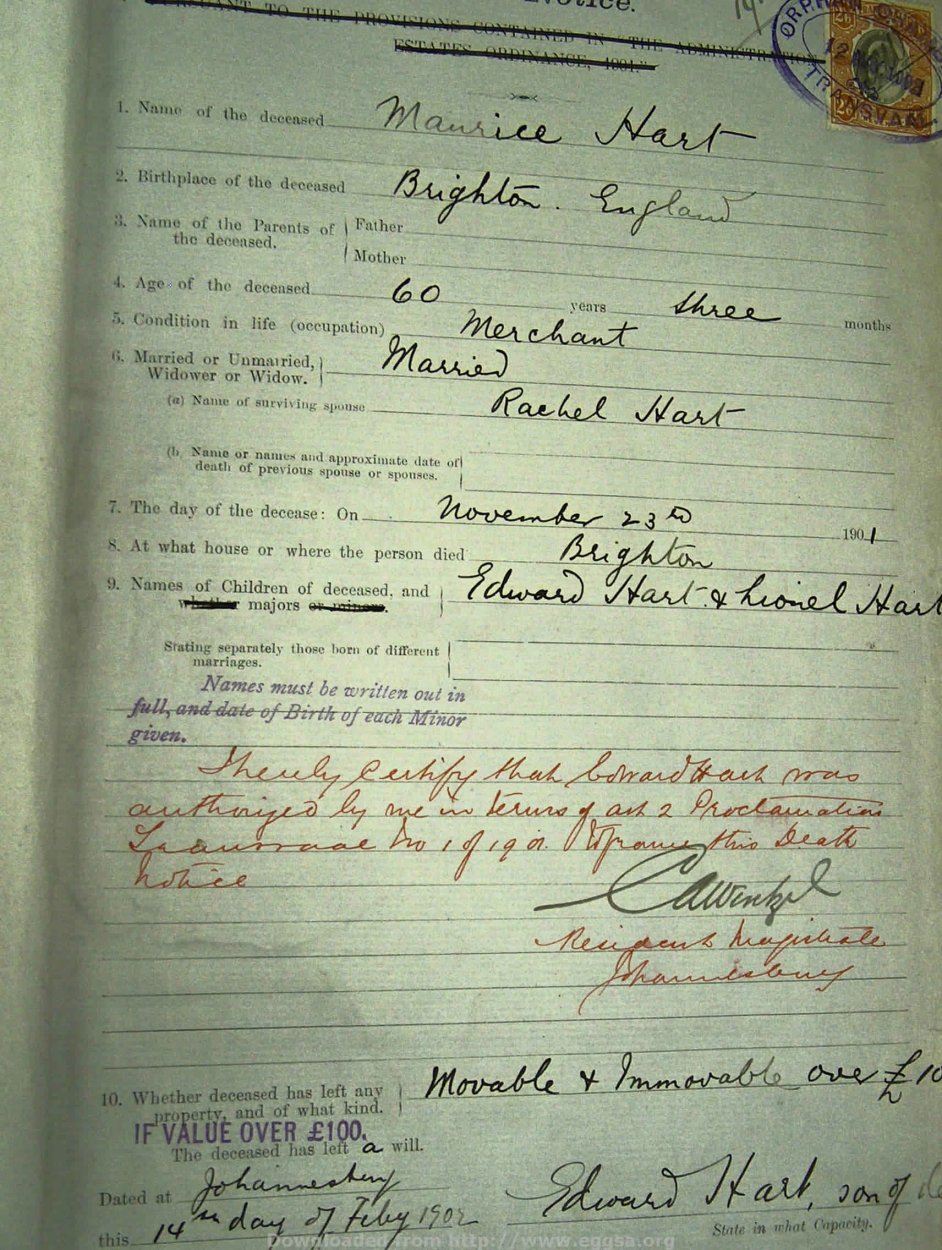 Notice.
TO THE PROVISIONS CONTAINED IN "THE ADMINISTRATION
ESTATES ORDINANCE, 1901."
ORPHAN
TRANSVAAL
2/6 2/6
1. Name of the deceased Maurice Hart
2. Birthplace of the deceased Brighton. England
3. Name of the Parents of the deceased. Father
Mother
4. Age of the deceased 60 years three months
5. Condition in life (occupation) Merchant
6. Married or Unmarried, Widower or Widow. Married
(a) Name of surviving spouse Rachel Hart
(b) Name or names and approximate date of
death of previous spouse or spouses.
7. The day of the decease: On November 23rd 1901
8. At what house or where the person died Brighton
9. Names of Children of deceased, and Edward Hart & Lionel Hart
whether majors or minors.
Stating separately those born of different
marriages.
Names must be written out in
full, and date of Birth of each Minor
given.
I hereby Certify that Edward Hart was
authorized by me in terms of art 2 Proclamation
Transvaal No 1 of 1901 to frame this Death
Notice
Resident Magistrate
Johannesburg
10. Whether deceased has left any Movable & Immovable over £10
property, and of what kind.
IF VALUE OVER £100.
The deceased has left a will.
Dated at Johannesburg
this 14th day of Feby 1902 Edward Hart, son of
State in what Capacity.
Downloaded from http://www.eggsa.org